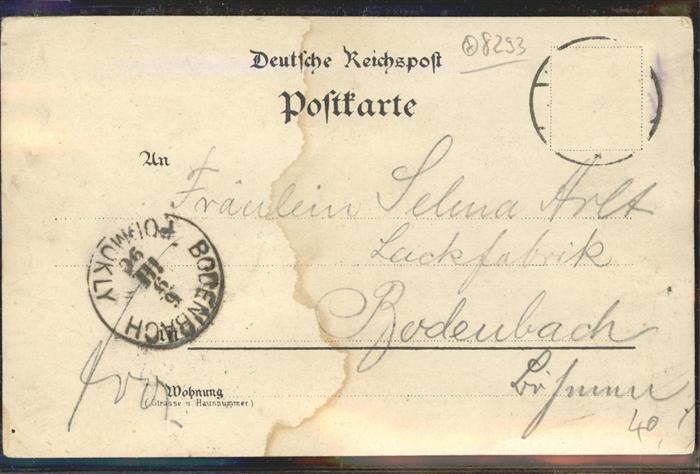 8293
Deutsche Reichspost
Postkarte
An
Fräulein Selma Arlt
Lackfabrik
BODENBACH
PODMOKLY
Bodenbach
in
Wohnung
(Strasse u. Hausnummer)
Böhmen
40